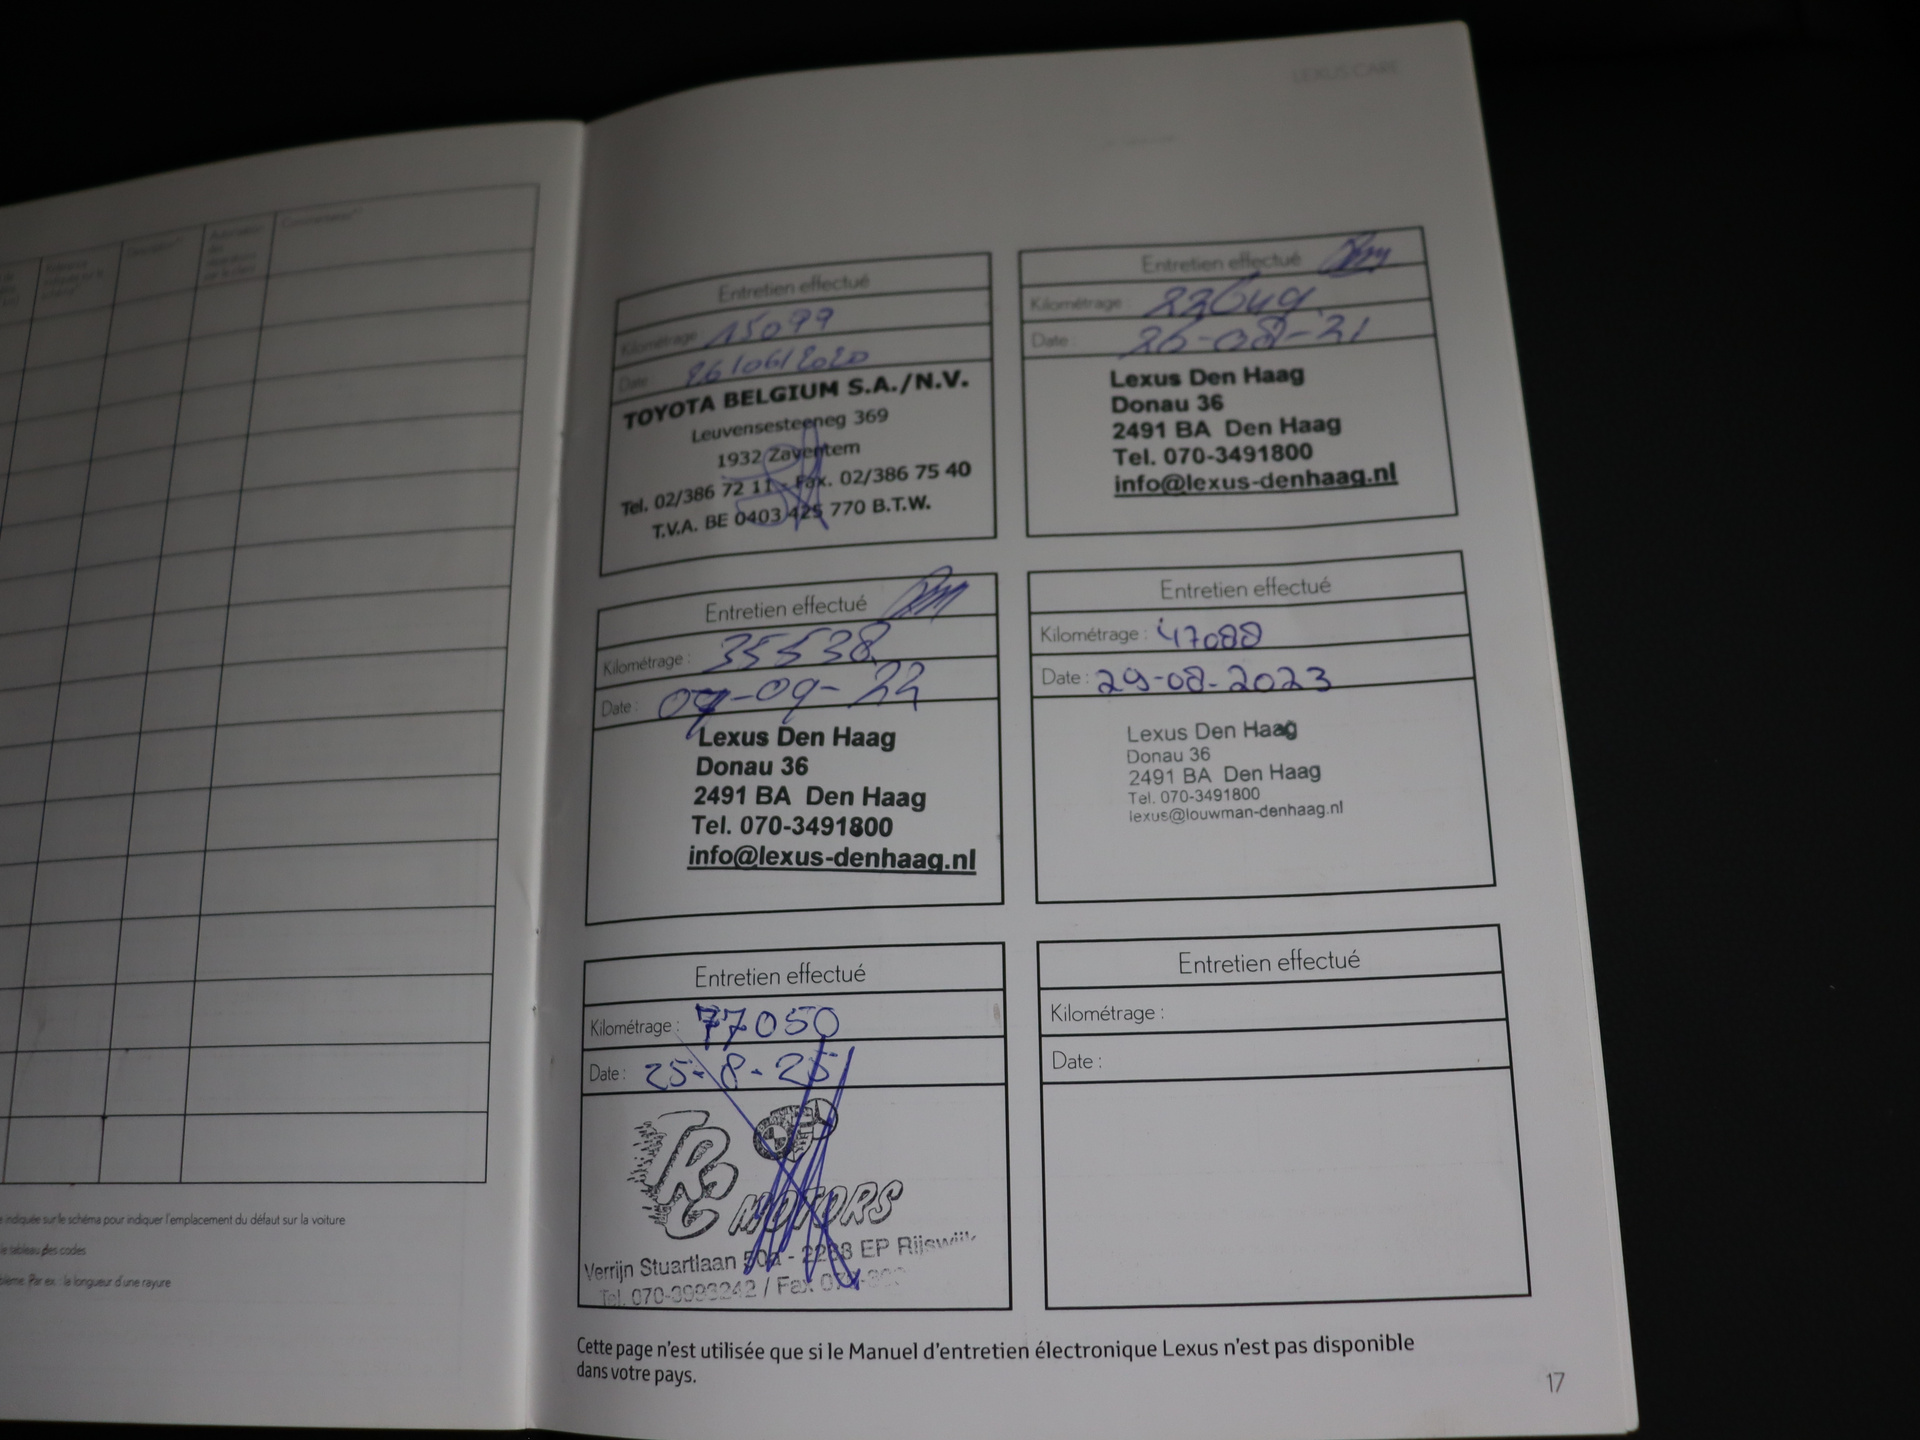 LEXUS CARE
Commentaires
e indiquée sur le schéma pour indiquer l'emplacement du défaut sur la voiture
le tableau des codes
blème. Par ex. : la longueur d'une rayure
Entretien effectué
Kilométrage : 15099
Date : 26/06/2020
TOYOTA BELGIUM S.A./N.V.
Leuvensesteeneg 369
1932 Zaventem
Tel. 02/386 72 11 - Fax. 02/386 75 40
T.V.A. BE 0403 425 770 B.T.W.
Entretien effectué
Kilométrage :
Date : 26-08-21
Lexus Den Haag
Donau 36
2491 BA Den Haag
Tel. 070-3491800
info@lexus-denhaag.nl
Entretien effectué
Kilométrage : 35538
Date : 07-09-22
Lexus Den Haag
Donau 36
2491 BA Den Haag
Tel. 070-3491800
info@lexus-denhaag.nl
Entretien effectué
Kilométrage : 47088
Date : 29-08-2023
Lexus Den Haag
Donau 36
2491 BA Den Haag
Tel. 070-3491800
lexus@louwman-denhaag.nl
Entretien effectué
Kilométrage : 77050
Date : 25-8-25
MOTORS
Verrijn Stuartlaan 50a - 2288 EP Rijswijk
Tel. 070-3993242 / Fax
Entretien effectué
Kilométrage :
Date :
Cette page n'est utilisée que si le Manuel d'entretien électronique Lexus n'est pas disponible
dans votre pays.
17